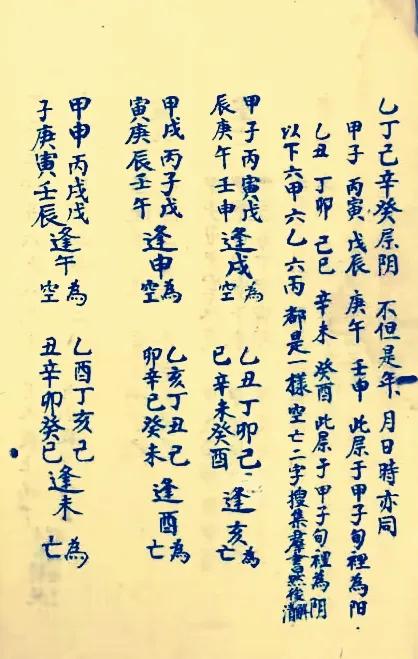 乙丁己辛癸属阴 不但是年 月日時亦同
甲子 丙寅 戊辰 庚午 壬申 此属于甲子旬裡為阳.
乙丑 丁卯 己巳 辛未 癸酉 此属于甲子旬裡為阴
以下六甲六乙六丙都是一樣空亡二字搜集羣書然後
甲子丙寅戊辰庚午壬申逢戌為空
乙丑丁卯己巳辛未癸酉逢亥為亡
甲戌丙子戊寅庚辰壬午逢申為空
乙亥丁丑己卯辛巳癸未逢酉為亡
甲申丙戌戊子庚寅壬辰逢午為空
乙酉丁亥己丑辛卯癸巳逢未為亡